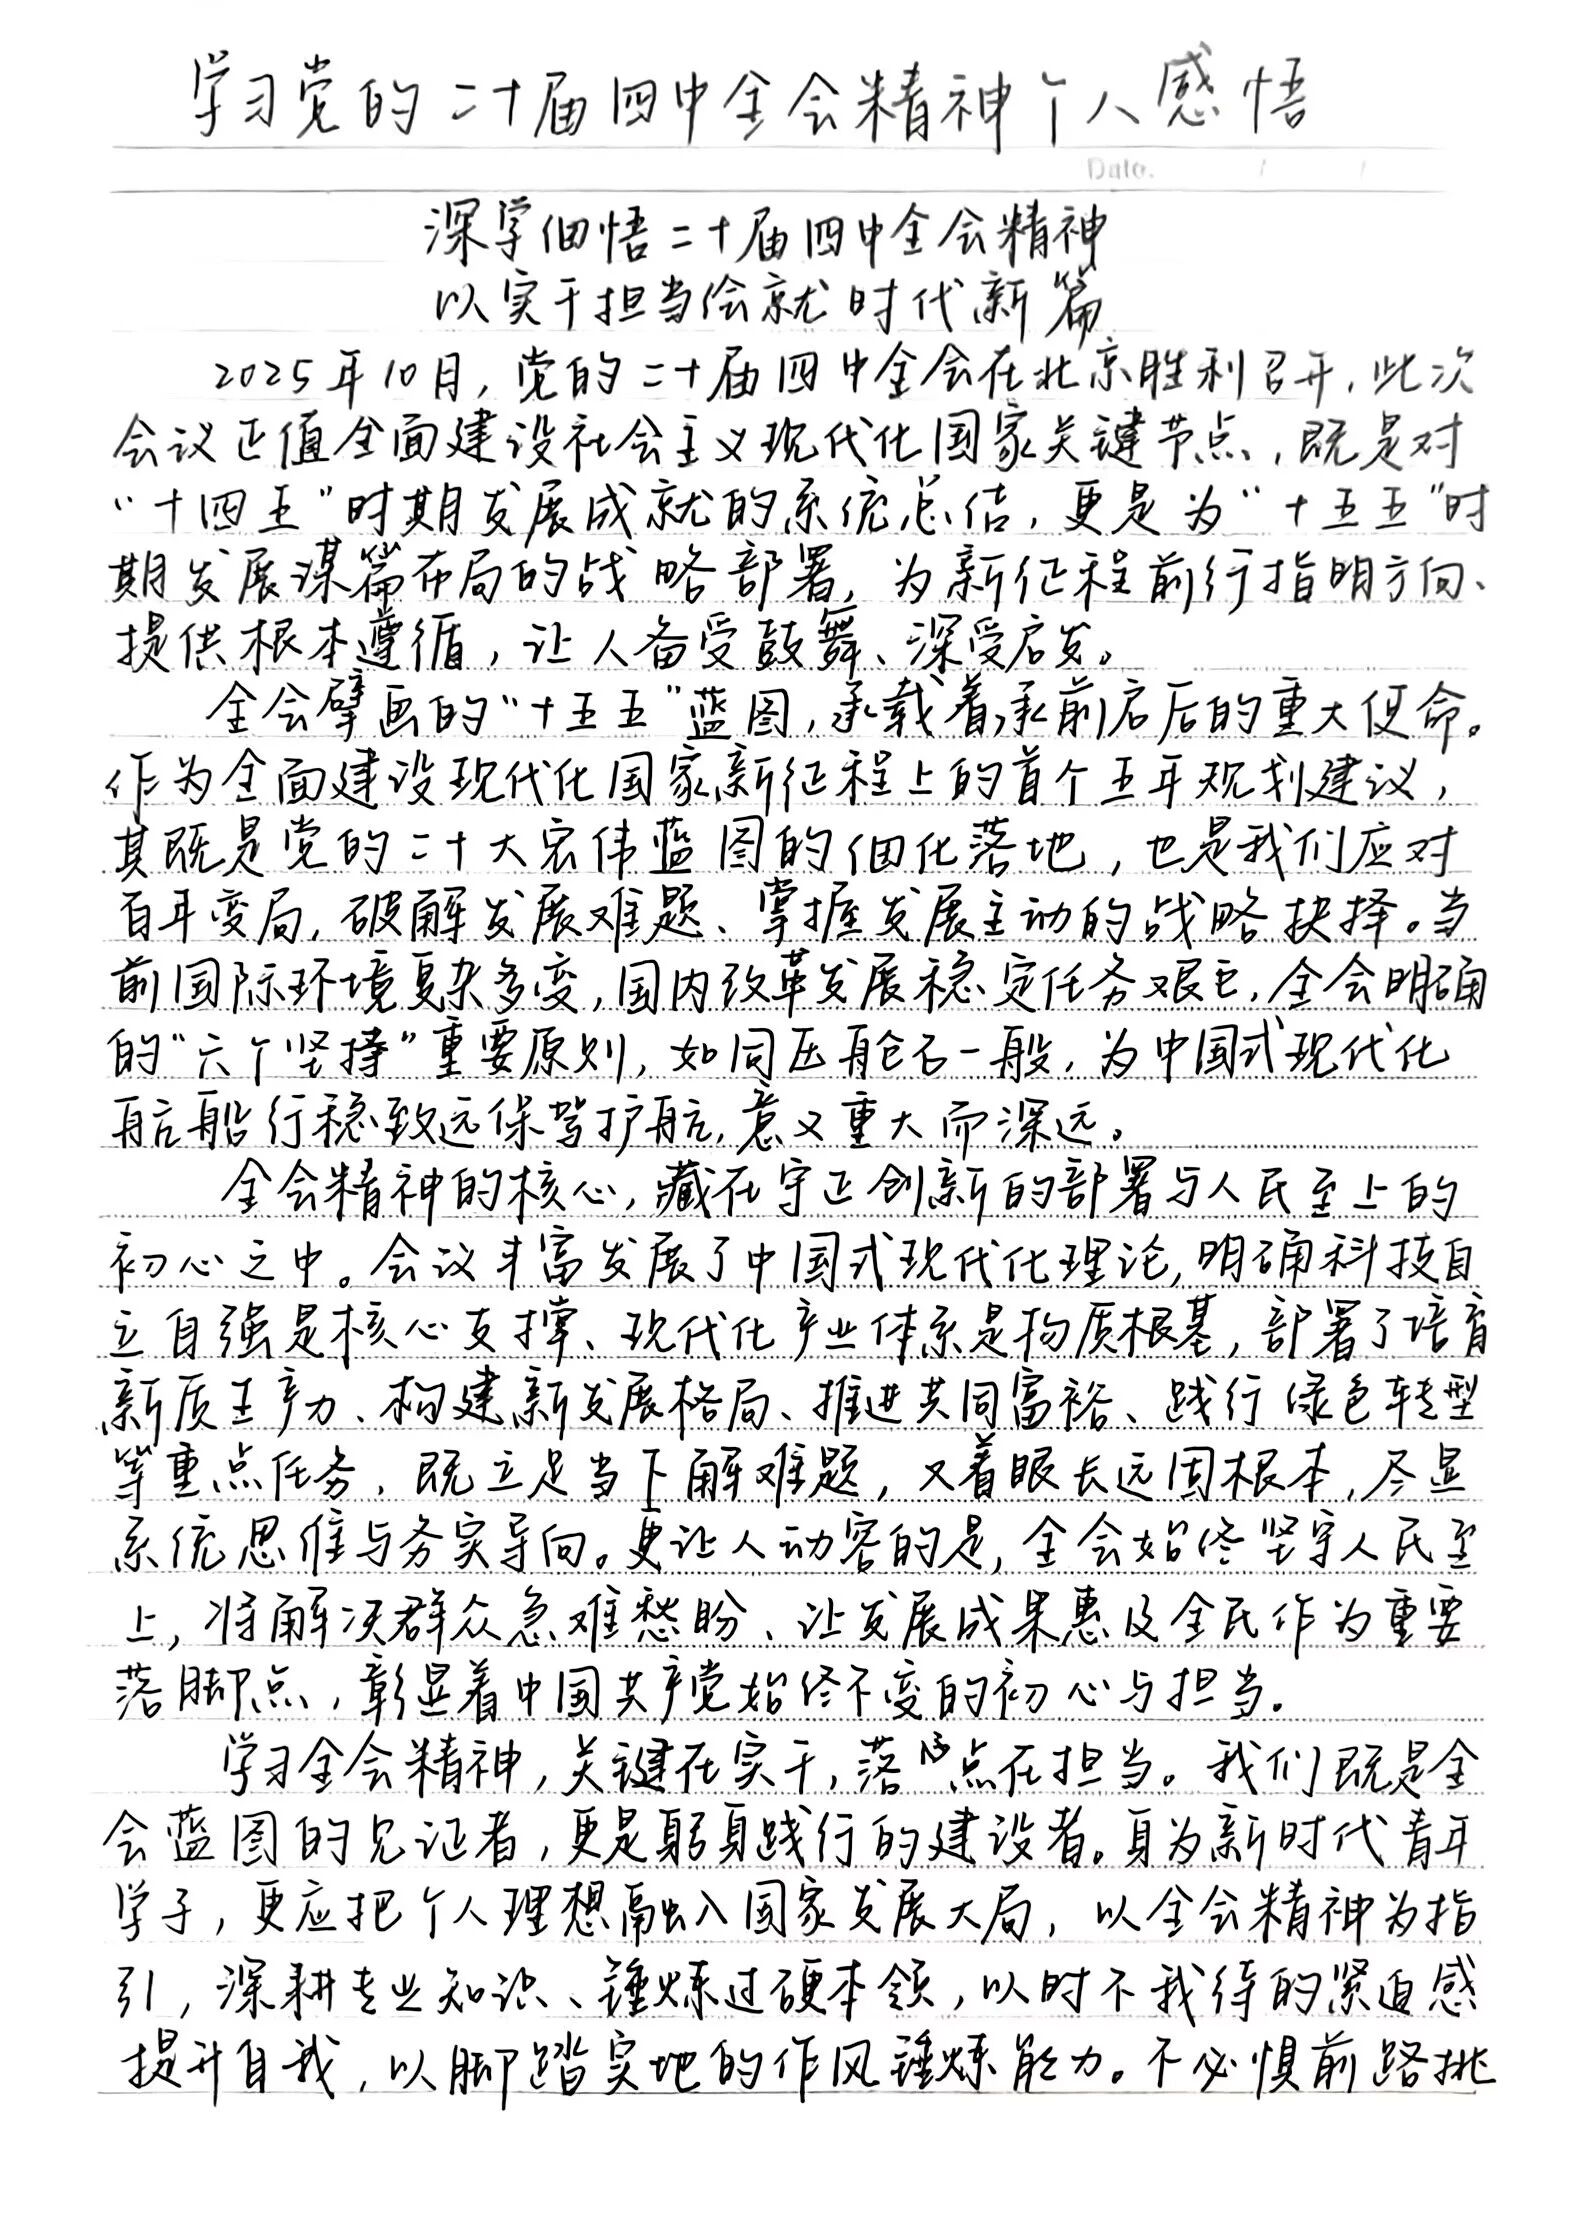 学习党的二十届四中全会精神个人感悟
Date. / /
深学细悟二十届四中全会精神
以实干担当绘就时代新篇
2025年10月，党的二十届四中全会在北京胜利召开，此次
会议正值全面建设社会主义现代化国家关键节点，既是对
“十四五”时期发展成就的系统总结，更是为“十五五”时
期发展谋篇布局的战略部署，为新征程前行指明方向、
提供根本遵循，让人备受鼓舞、深受启发。
全会擘画的“十五五”蓝图，承载着承前启后的重大使命。
作为全面建设现代化国家新征程上的首个五年规划建议，
其既是党的二十大宏伟蓝图的细化落地，也是我们应对
百年变局，破解发展难题、掌握发展主动的战略抉择。当
前国际环境复杂多变，国内改革发展稳定任务艰巨，全会明确
的“六个坚持”重要原则，如同压舱石一般，为中国式现代化
航船行稳致远保驾护航，意义重大而深远。
全会精神的核心，藏在守正创新的部署与人民至上的
初心之中。会议丰富发展了中国式现代化理论，明确科技自
立自强是核心支撑、现代化产业体系是物质根基，部署了培育
新质生产力、构建新发展格局、推进共同富裕、践行绿色转型
等重点任务，既立足当下解难题，又着眼长远固根本，尽显
系统思维与务实导向。更让人动容的是，全会始终坚守人民至
上，将解决群众急难愁盼、让发展成果惠及全民作为重要
落脚点，彰显着中国共产党始终不变的初心与担当。
学习全会精神，关键在实干，落脚点在担当。我们既是全
会蓝图的见证者，更是躬身践行的建设者。身为新时代青年
学子，更应把个人理想融入国家发展大局，以全会精神为指
引，深耕专业知识、锤炼过硬本领，以时不我待的紧迫感
提升自我，以脚踏实地的作风锤炼能力。不必惧前路挑